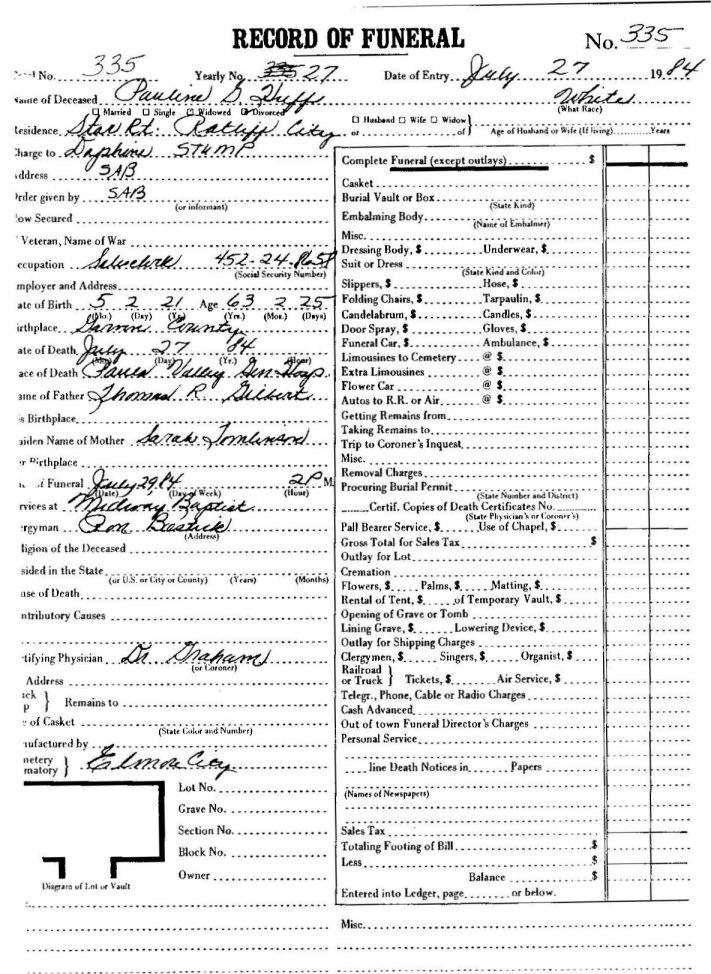 RECORD OF FUNERAL No. 335
No. 335 Yearly No. 27 Date of Entry July 27 1984
Name of Deceased Pauline G Huff White
(What Race)
☐ Married ☐ Single ☐ Widowed ☐ Divorced
☐ Husband ☐ Wife ☐ Widow }
Residence Star Rt. Ratliff City or of Age of Husband or Wife (If living) Years
Charge to Daphine STUMP
Address SAB
Order given by SAB
(or informant)
How Secured
Veteran, Name of War
Occupation Salesclerk 452-24-
(Social Security Number)
Employer and Address
ate of Birth 5 2 21 Age 63 2 25
(Mo.) (Day) (Yr.) (Yrs.) (Mos.) (Days)
irthplace Garvin County
ate of Death July 27 84
(Mo.) (Day) (Yr.) (Hour)
ace of Death Pauls Valley Gen Hosp.
ame of Father Thomas R. Gilbert
is Birthplace
aiden Name of Mother Sarah
er Birthplace
of Funeral July 29, 84 2 P M.
(Date) (Day of Week) (Hour)
rvices at Midway Baptist
ergyman Ron
(Address)
ligion of the Deceased
sided in the State
(or U.S. or City or County) (Years) (Months)
use of Death
ntributory Causes
tifying Physician Dr. Graham
(or Coroner)
Address
Remains to
e of Casket
(State Color and Number)
nufactured by
metery
matory } Elmore City
Lot No.
Grave No.
Section No.
Block No.
Owner
Diagram of Lot or Vault
Complete Funeral (except outlays) $
Casket
Burial Vault or Box
(State Kind)
Embalming Body
(Name of Embalmer)
Misc.
Dressing Body, $ Underwear, $
Suit or Dress
(State Kind and Color)
Slippers, $ Hose, $
Folding Chairs, $ Tarpaulin, $
Candelabrum, $ Candles, $
Door Spray, $ Gloves, $
Funeral Car, $ Ambulance, $
Limousines to Cemetery @ $
Extra Limousines @ $
Flower Car @ $
Autos to R.R. or Air @ $
Getting Remains from
Taking Remains to
Trip to Coroner's Inquest
Misc.
Removal Charges
Procuring Burial Permit
(State Number and District)
Certif. Copies of Death Certificates No.
(State Physician's or Coroner's)
Pall Bearer Service, $ Use of Chapel, $
Gross Total for Sales Tax $
Outlay for Lot
Cremation
Flowers, $ Palms, $ Matting, $
Rental of Tent, $ of Temporary Vault, $
Opening of Grave or Tomb
Lining Grave, $ Lowering Device, $
Outlay for Shipping Charges
Clergymen, $ Singers, $ Organist, $
Railroad
or Truck } Tickets, $ Air Service, $
Telegr., Phone, Cable or Radio Charges
Cash Advanced
Out of town Funeral Director's Charges
Personal Service
line Death Notices in Papers
(Names of Newspapers)
Sales Tax
Totaling Footing of Bill $
Less $
Balance $
Entered into Ledger, page or below.
Misc.